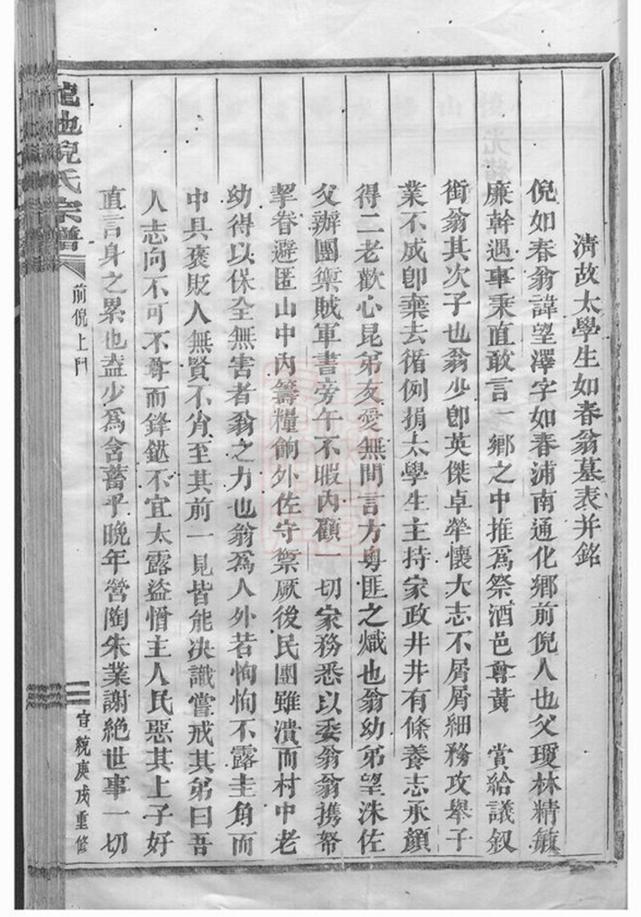 清故太學生如春翁墓表并銘
倪如春翁諱望澤字如春浦南通化鄉前倪人也父瓊林精敏
廉幹遇事秉直敢言一鄉之中推爲祭酒邑尊黃 賞給議叙
銜翁其次子也翁少卽英傑卓犖懷大志不屑屑細務攻舉子
業不成卽棄去循例捐太學生主持家政井井有條養志承顏
得二老歡心昆弟友愛無間言方粵匪之熾也翁幼弟望洙佐
父辦團禦賊軍書旁午不暇內顧一切家務悉以委翁翁携帑
挈眷避匿山中內籌糧餉外佐守禦厥後民團雖潰而村中老
幼得以保全無害者翁之力也翁爲人外若恂恂不露圭角而
中具褒貶人無賢不肖至其前一見皆能決識嘗戒其弟曰吾
人志向不可不尊而鋒鋩不宜太露盜憎主人民惡其上子好
直言身之累也盍少爲含蓄乎晚年營陶朱業謝絕世事一切
龍池倪氏宗譜
前倪上門
宣統庚戌重修